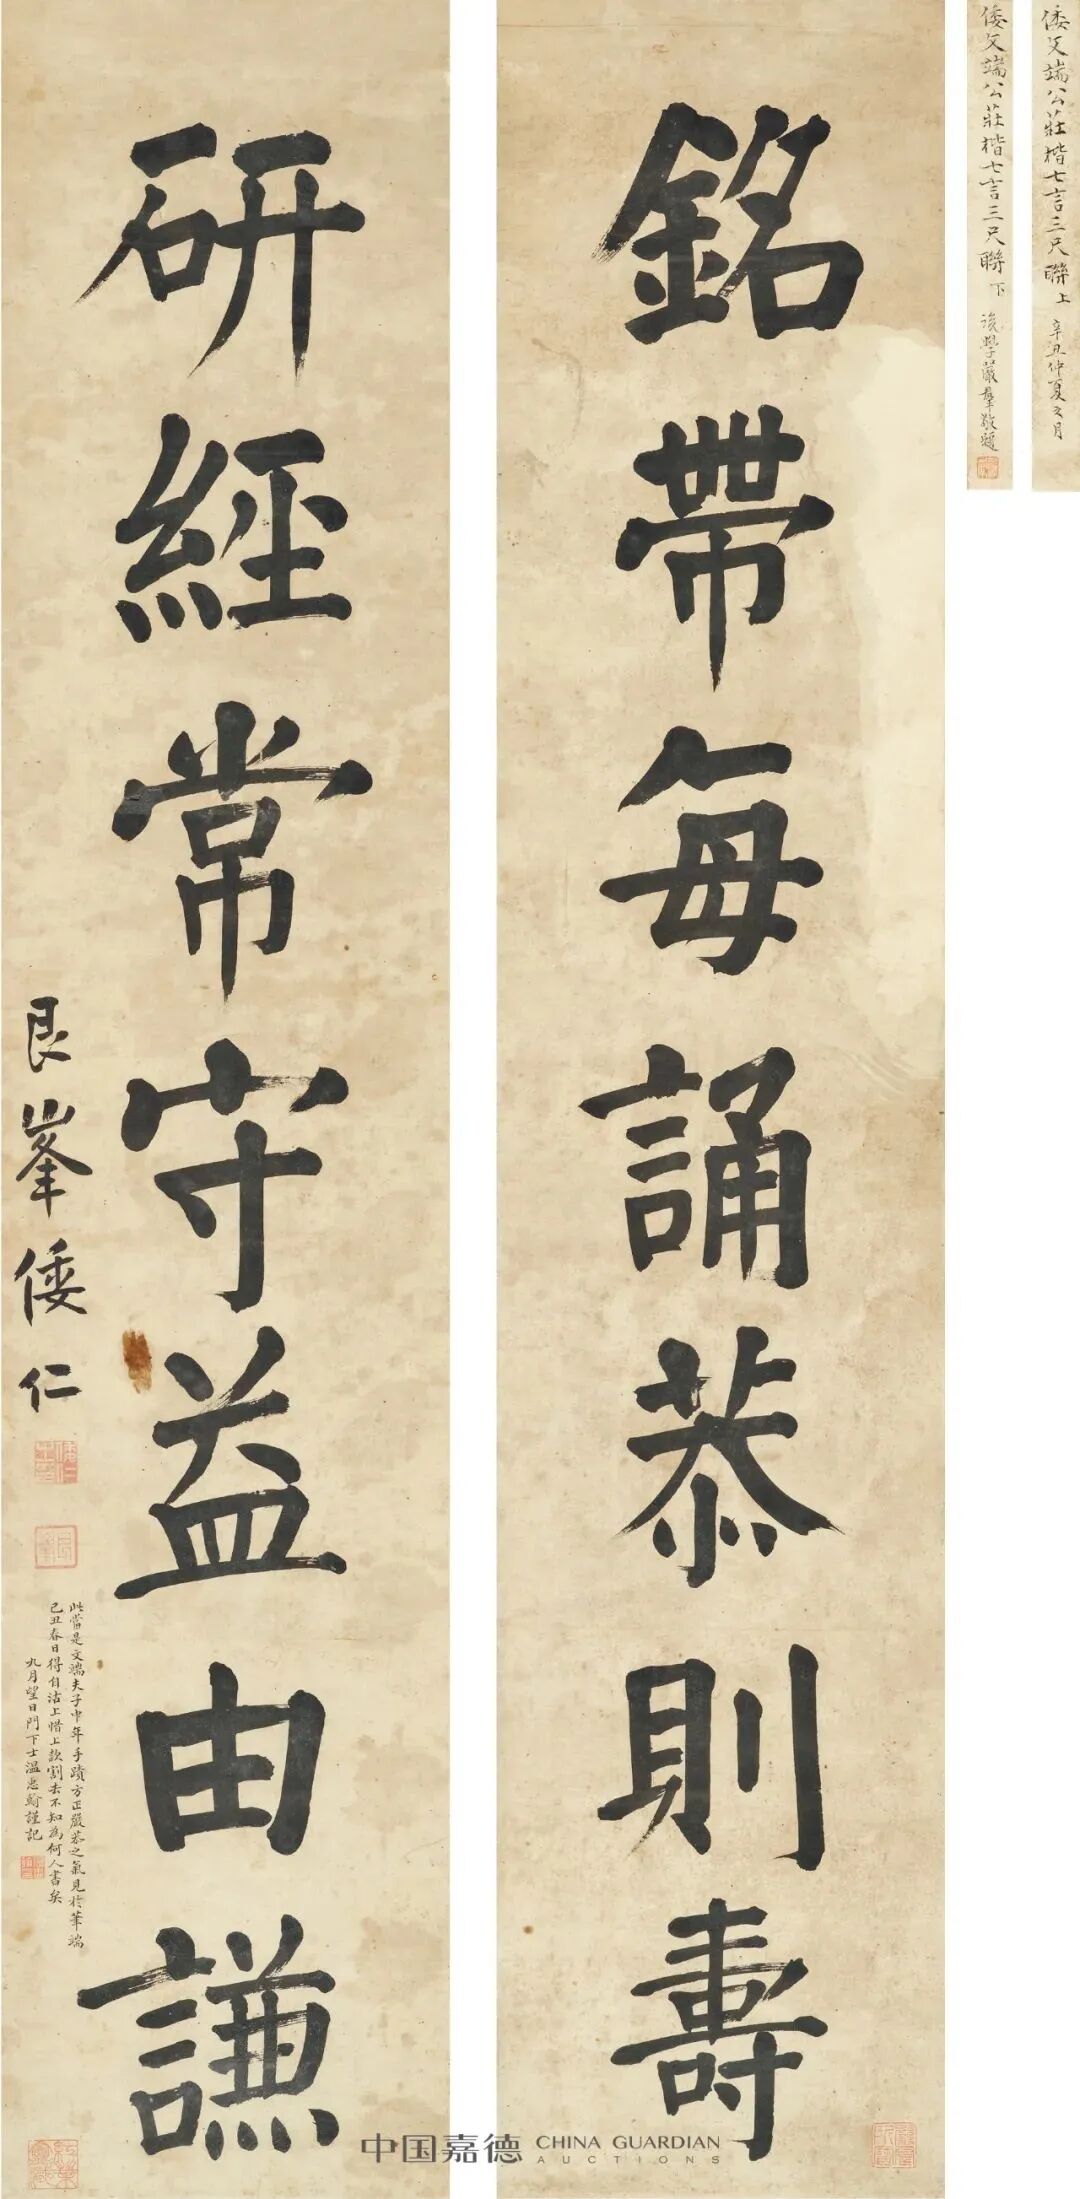 倭文端公莊楷七言三尺聯上 辛丑仲夏之月
倭文端公莊楷七言三尺聯下 後學嚴羣敬題
銘帶每誦恭則壽
研經常守益由謙
艮峯倭仁
倭仁
艮峯
此當是文端夫子中年手蹟方正嚴恭之氣見於筆端
己丑春日得自沽上惜上款割去不知為何人書矣
九月望日門下士溫忠翰謹記
中国嘉德 CHINA GUARDIAN
AUCTIONS